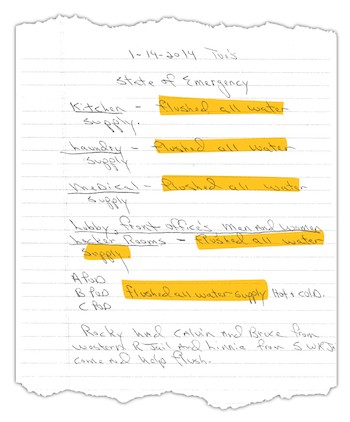 1-14-2014 Tue's
State of Emergency
Kitchen - flushed all water
supply.
Laundry - flushed all water
supply
Medical - flushed all water
supply
Lobby, front office's, Men and Women
locker Rooms - flushed all water
supply
A POD
B POD flushed all water supply Hot + cold.
C POD
Rocky had Calvin and Bruce from
western R Jail and Linnia from SWRJ
come and help flush.